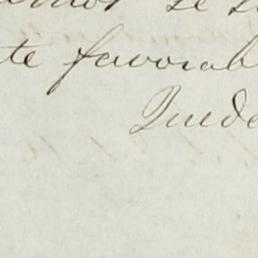 se
te favorab
Quedo